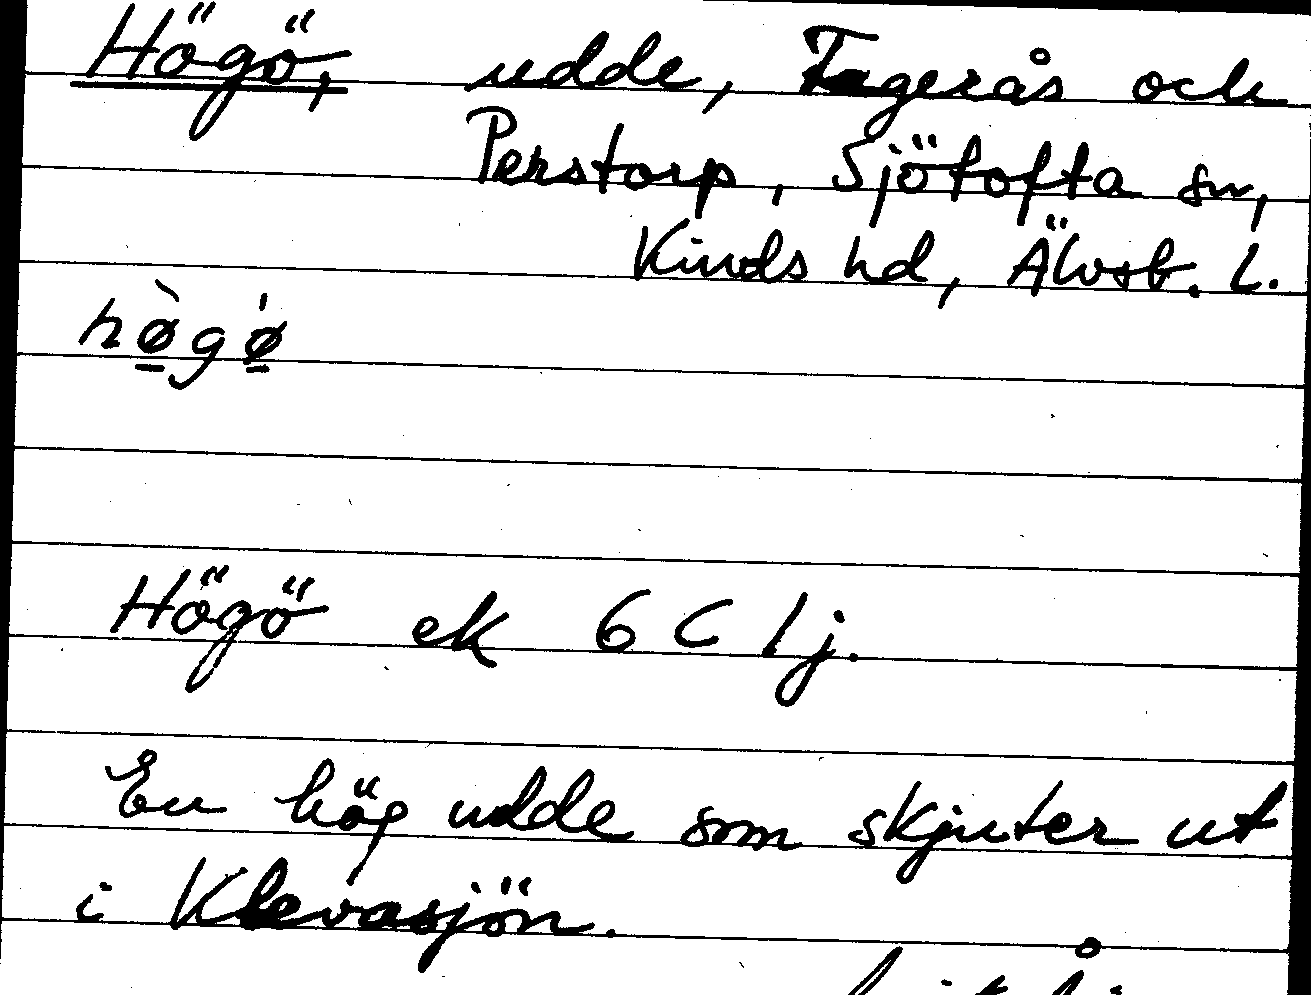 Högö, udde, Tagerås och
Perstorp, Sjötofta sn,
Kinds hd, Älvsb. l.
hø̠̀gǿ̠
Högö ek 6 C 1j.
En hög udde som skjuter ut
i Klevasjön.